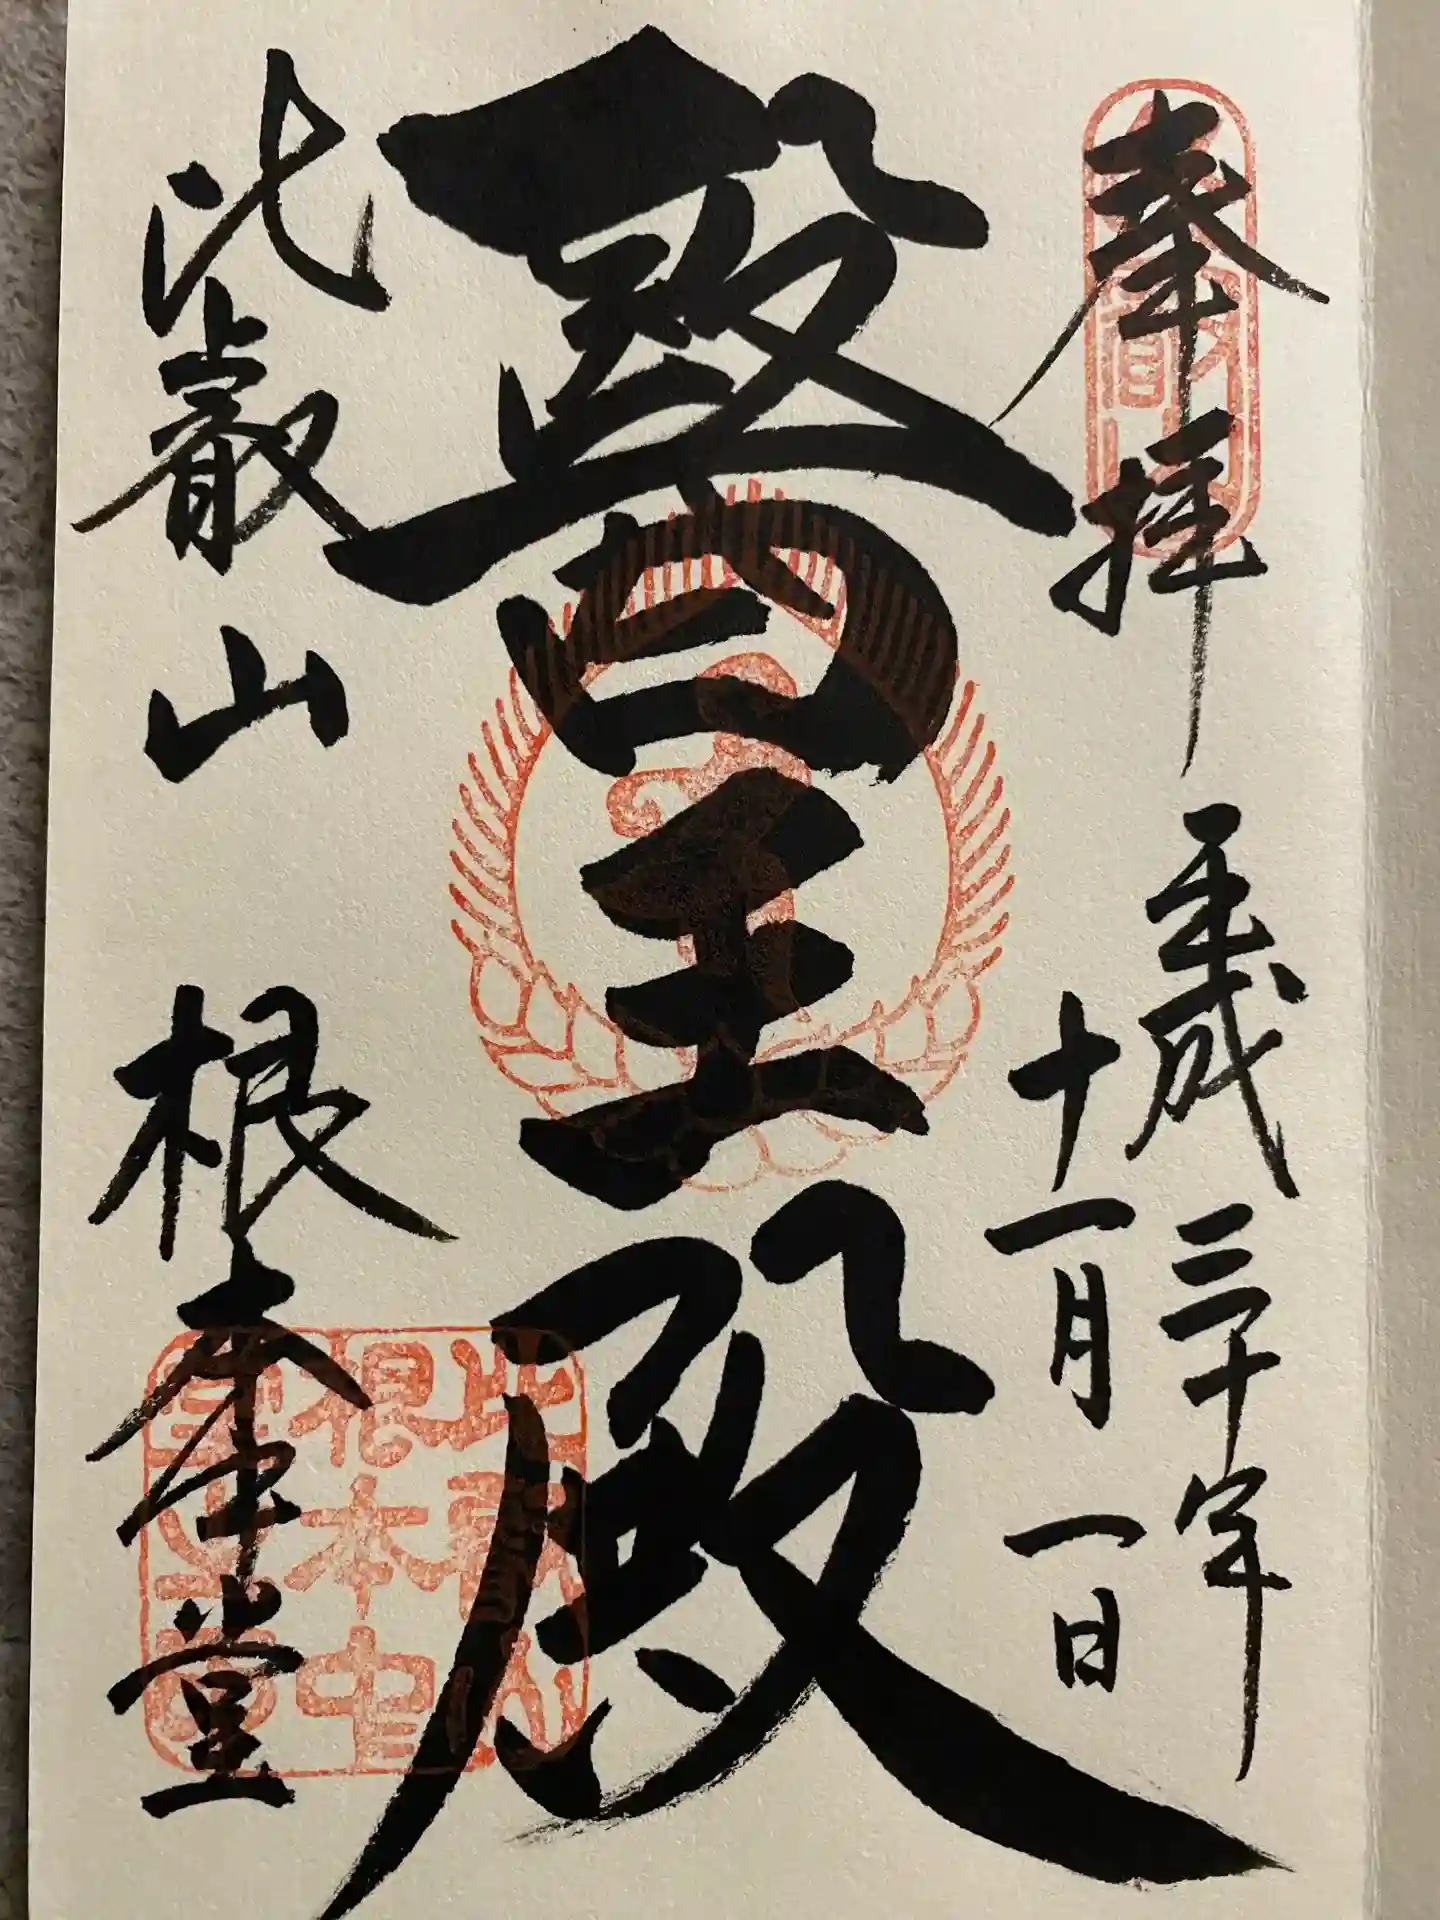 奉拝
平成三十年
十一月一日
醫王殿
比叡山 根本中堂
比叡山
根本中
堂